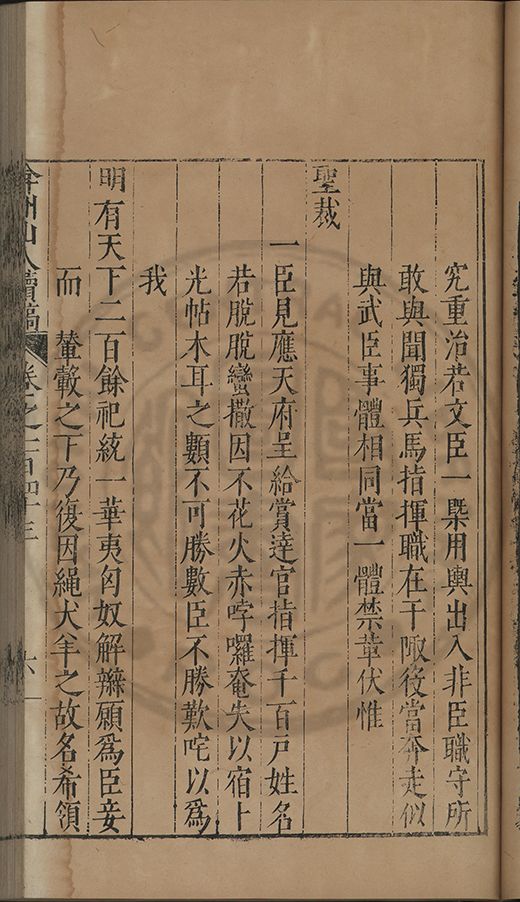 究重治若文臣一槩用輿出入非臣職守所
敢與聞獨兵馬指揮職在干陬後當奔走似
與武臣事體相同當一體禁革伏惟
聖裁
一臣見應天府呈給賞達官指揮千百戶姓名
若脫脫蠻撒因不花火赤哱囉奄失以宿卜
光帖木耳之類不可勝數臣不勝歎咤以為
我
明有天下二百餘祀統一華夷匈奴解辮願為臣妾
而輦轂之下乃復因繩犬羊之故名希領
弇州山人續稿 卷之一百四十三 六